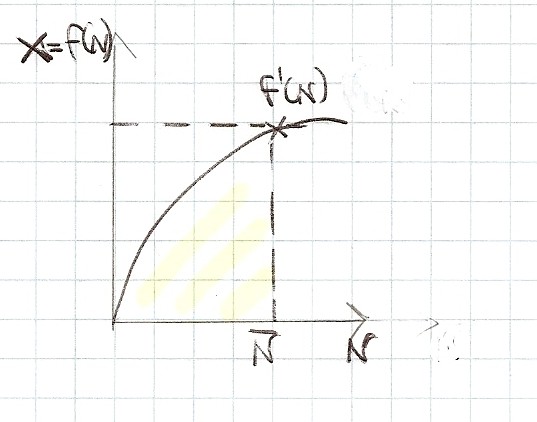 X=f(N)
f'(N)
N̅
N